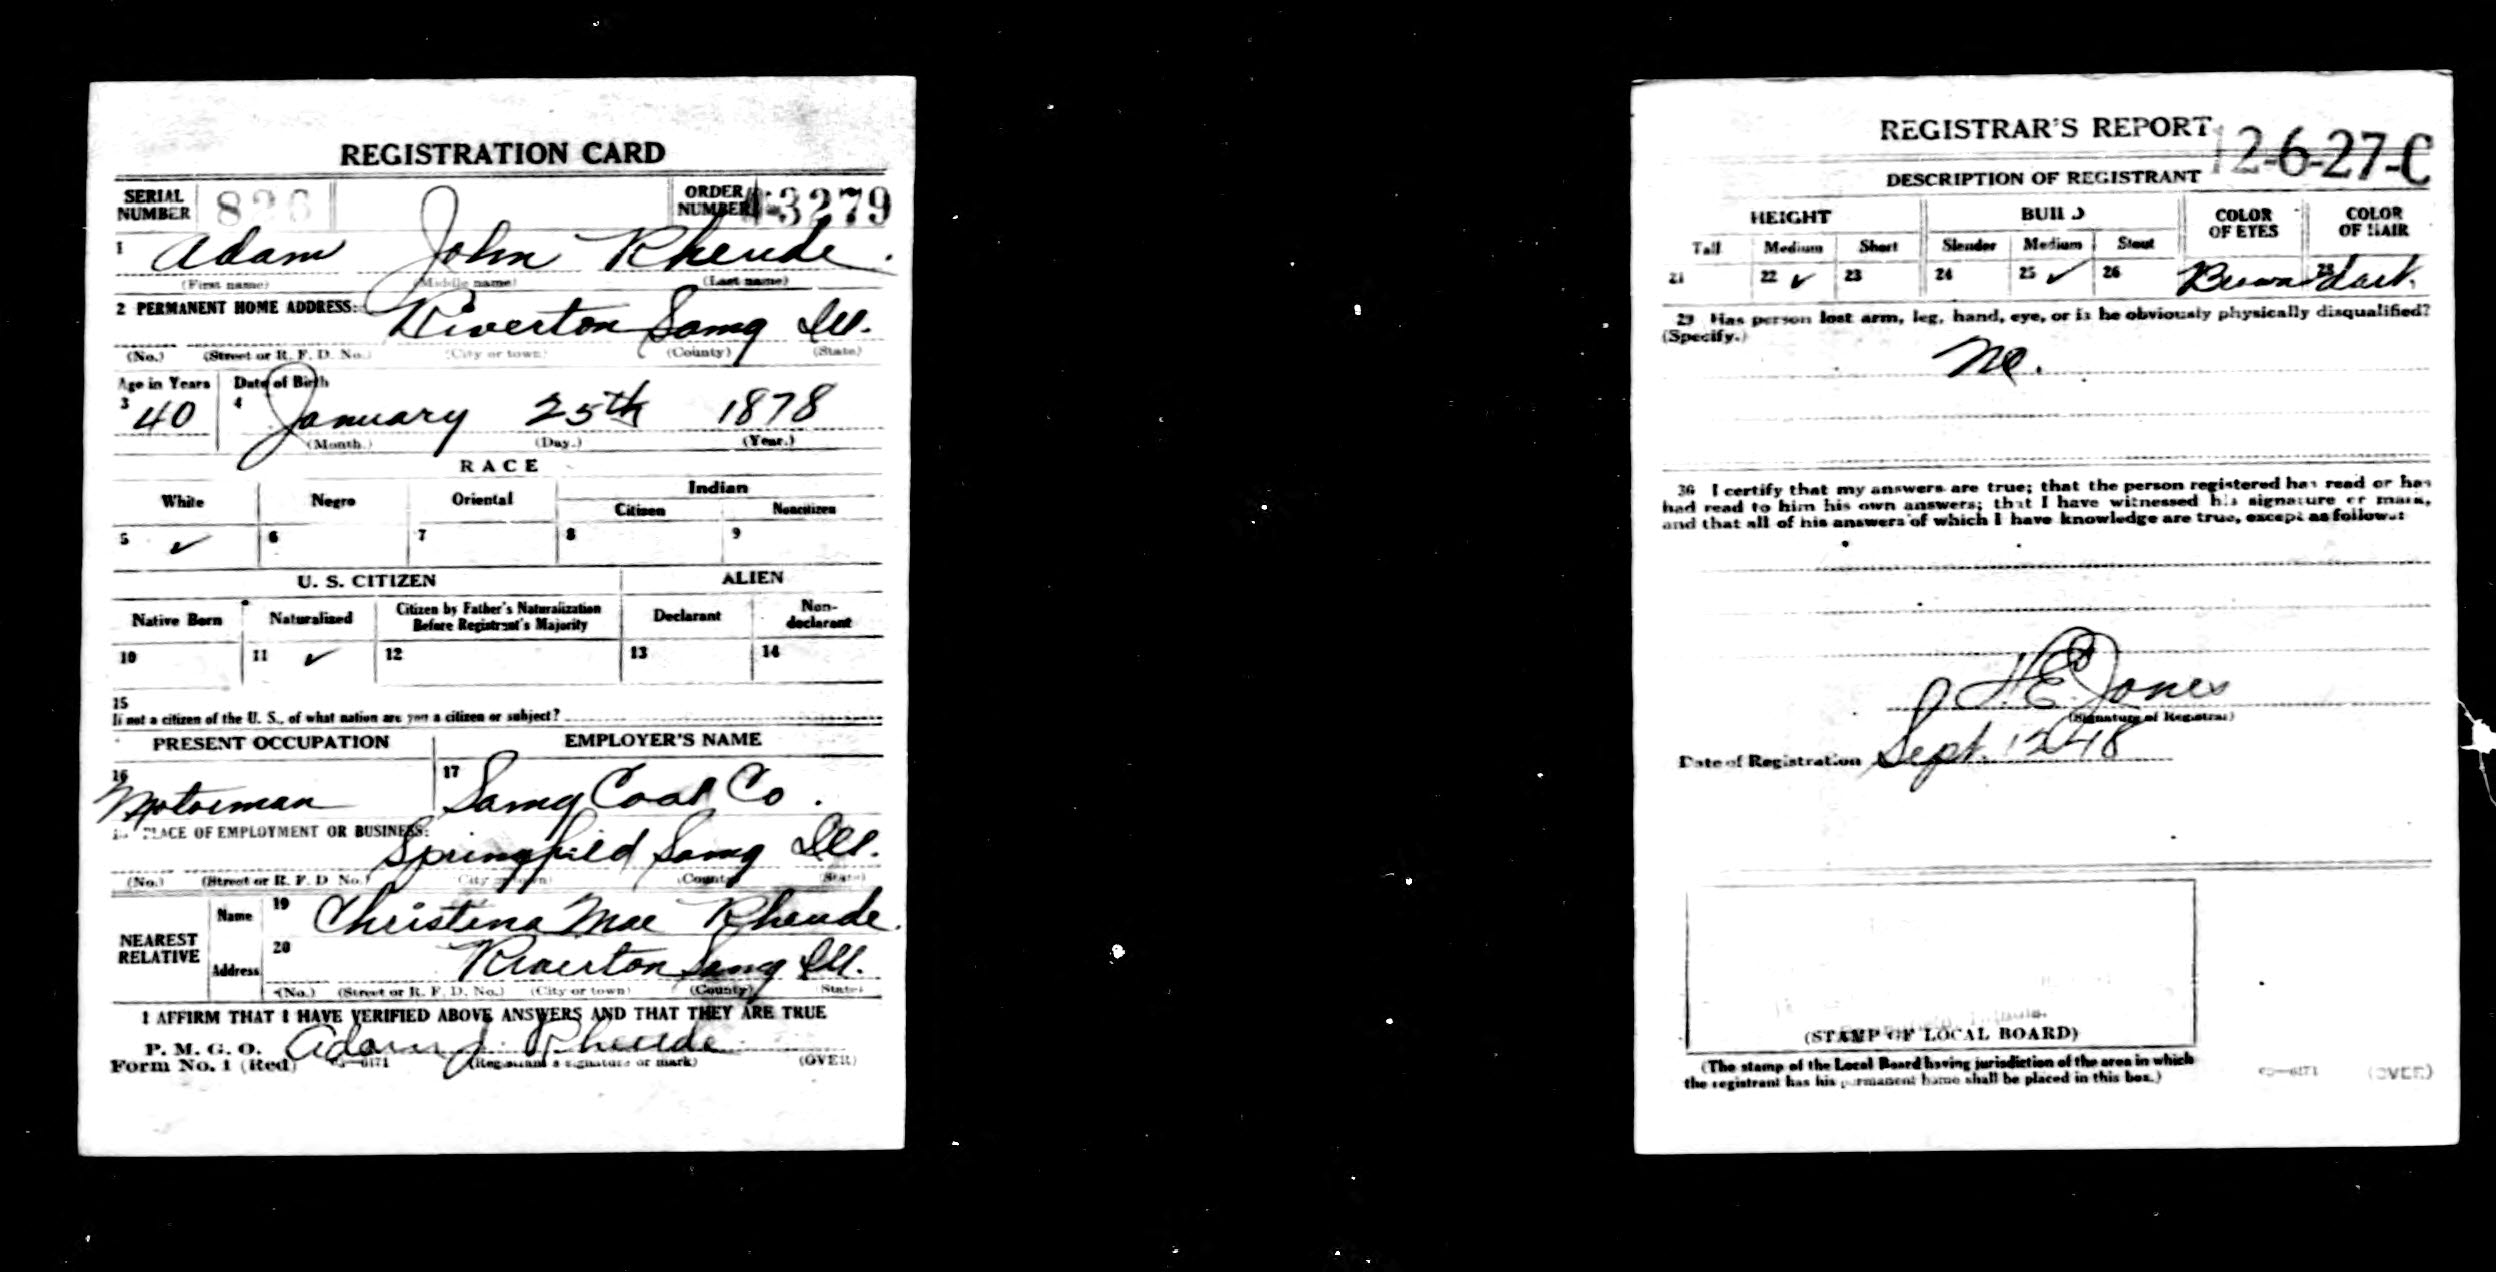 REGISTRATION CARD
SERIAL NUMBER 826 ORDER NUMBER 3279
1 Adam John Rheude.
(First name) (Middle name) (Last name)
2 PERMANENT HOME ADDRESS:
Riverton Samg Ill.
(No.) (Street or R. F. D. No.) (City or town) (County) (State)
Age in Years Date of Birth
3 40 4 January 25th 1878
(Month.) (Day.) (Year.)
RACE
White Negro Oriental Indian
Citizen Noncitizen
5 ✓ 6 7 8 9
U. S. CITIZEN ALIEN
Native Born Naturalized Citizen by Father's Naturalization Before Registrant's Majority Declarant Non-declarant
10 11 ✓ 12 13 14
15
If not a citizen of the U. S., of what nation are you a citizen or subject?
PRESENT OCCUPATION EMPLOYER'S NAME
16 Motorman 17 Samg Coal Co.
PLACE OF EMPLOYMENT OR BUSINESS:
Springfield Samg Ill.
(No.) (Street or R. F. D. No.) (City or town) (County) (State)
NEAREST RELATIVE
Name 19 Christena Mae Rheude.
Address 20 Riverton Samg Ill.
(No.) (Street or R. F. D. No.) (City or town) (County) (State)
I AFFIRM THAT I HAVE VERIFIED ABOVE ANSWERS AND THAT THEY ARE TRUE
P. M. G. O.
Form No. 1 (Red) Adam J. Rheude
(Registrant's signature or mark) (OVER)
REGISTRAR'S REPORT
12-6-27-C
DESCRIPTION OF REGISTRANT
HEIGHT BUILD COLOR OF EYES COLOR OF HAIR
Tall Medium Short Slender Medium Stout
21 22 ✓ 23 24 25 ✓ 26 Brown 28 dark.
29 Has person lost arm, leg, hand, eye, or is he obviously physically disqualified?
(Specify.)
No.
30 I certify that my answers are true; that the person registered has read or has
had read to him his own answers; that I have witnessed his signature or mark,
and that all of his answers of which I have knowledge are true, except as follows:
H. E. Jones
(Signature of Registrar)
Date of Registration Sept. 12-18
(STAMP OF LOCAL BOARD)
(The stamp of the Local Board having jurisdiction of the area in which
the registrant has his permanent home shall be placed in this box.)
(OVER)